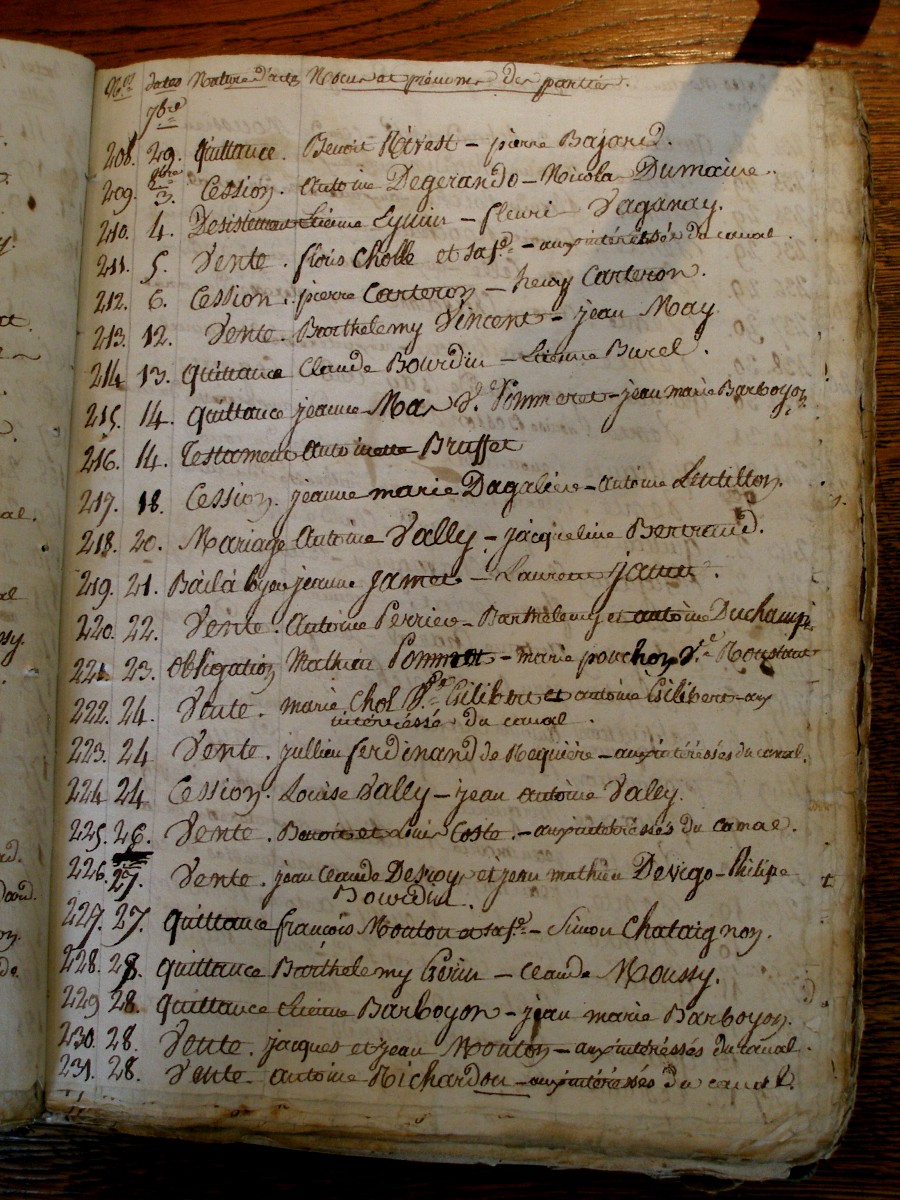 Nos. dates Nature d'actes Noms et prénoms des parties.
7bre
208. 29. quittance. Benoit Rivest - pierre Bajard.
8bre
209. 3. Cession. Antoine Degerando - Nicolas Dumaine.
210. 4. Desistement Etienne - fleuri Vaganay.
211. 5. Vente. floris Cholle et sa fe. - aux intéressés du canal.
212. 6. Cession. pierre Carteron - henry Carteron.
213. 12. Vente. Barthelemy Vincent - jean May
214 13. quittance Claude Bourdin - Etienne Burel.
215. 14. quittance jeanne Mas Ve. Pommerot - jean marie Barboyon
216. 14. Testament Antoinette Bruffet
217. 18. Cession. jeanne marie Dagalier - Antoine
218. 20. Mariage Antoine Vally - jacqueline Bertrand.
219. 21. Bail à loyer jeanne jamet - Laurent
220. 22. Vente. Antoine Perrier - Barthelemy et antoine Duchamp
221. 23. Obligation Mathieu - marie pouchon Ve
222. 24. Vente. marie Chol Ve. Gilibert et antoine Gilibert - aux
intéressés du canal.
223. 24 Vente. jullien ferdinand de Requière - aux intéressés du canal.
224 24 Cession. Louise Vally - jean antoine Vally.
225. 26. Vente. Benoit et Louis Coste. - aux intéressés du canal.
226. 27. Vente. jean Claude et jean mathieu Devigo - Philipe
Bourdin.
227. 27. quittance françois Mouton et sa fe. - Simon Chataignon.
228. 28. quittance Barthelemy - Claude Moussy.
229 28. quittance Etienne Barboyon - jean marie Barboyon.
230. 28. Vente. jacques et jean Mouton - aux intéressés du canal.
231. 28. Vente. antoine Richardon - aux intéressés du canal.